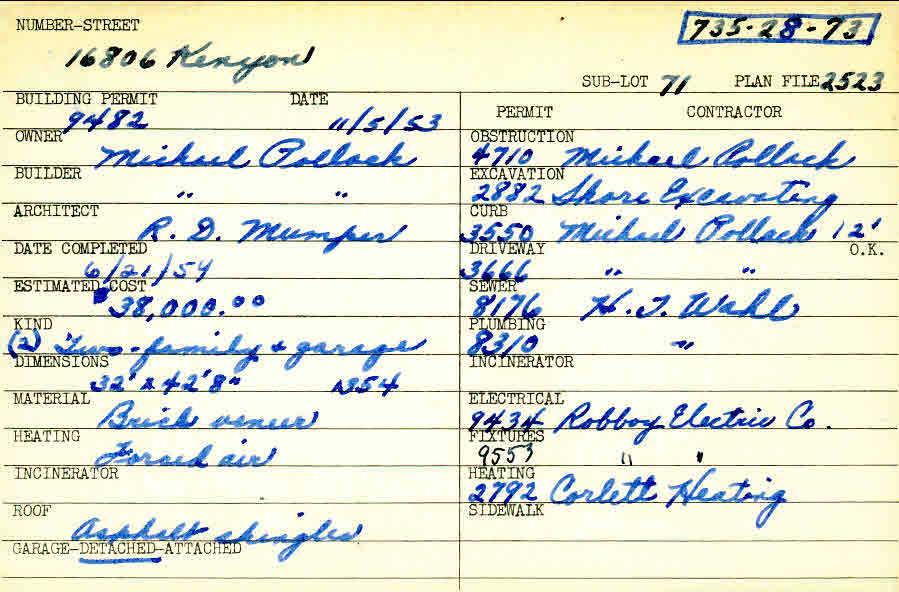 NUMBER-STREET
735-28-73
16806 Kenyon
SUB-LOT 71 PLAN FILE 2523
BUILDING PERMIT DATE
9482 11/5/53
OWNER
Michael Pollack
BUILDER
" "
ARCHITECT
R. D. Mumper
DATE COMPLETED
6/21/54
ESTIMATED COST
$38,000.00
KIND
(2) Two-family & garage
DIMENSIONS
32' x 42'8"
MATERIAL
Brick veneer
HEATING
Forced air
INCINERATOR
ROOF
Asphalt shingles
GARAGE-DETACHED-ATTACHED
PERMIT CONTRACTOR
OBSTRUCTION
4710 Michael Pollack
EXCAVATION
2882 Shore Excavating
CURB
3550 Michael Pollack 12'
DRIVEWAY O.K.
3666 " "
SEWER
8176 H. J. Wahl
PLUMBING
8310 "
INCINERATOR
ELECTRICAL
9434 Robboy Electric Co.
FIXTURES
9553 " "
HEATING
2792 Corlett Heating
SIDEWALK